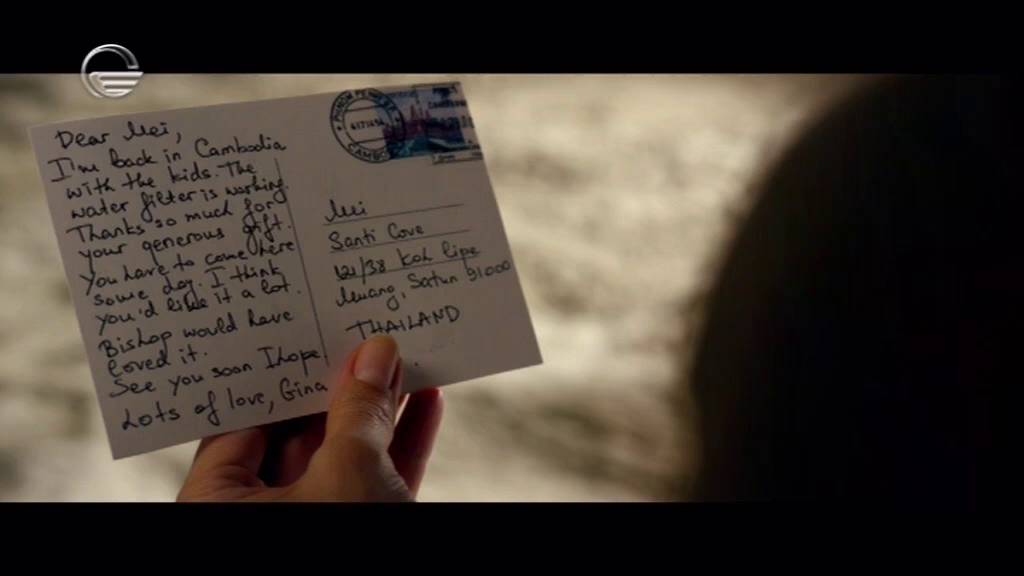 Dear Mei,
I'm back in Cambodia
with the kids. The
water filter is working.
Thanks so much for
your generous gift.
You have to come here
some day. I think
you'd like it a lot.
Bishop would have
loved it.
See you soon I hope
Lots of love, Gina
PHNOM PENH
CAMBODIA
Mei
Santi Cove
121/38 Koh Lipe
Muang, Satun 91000
THAILAND